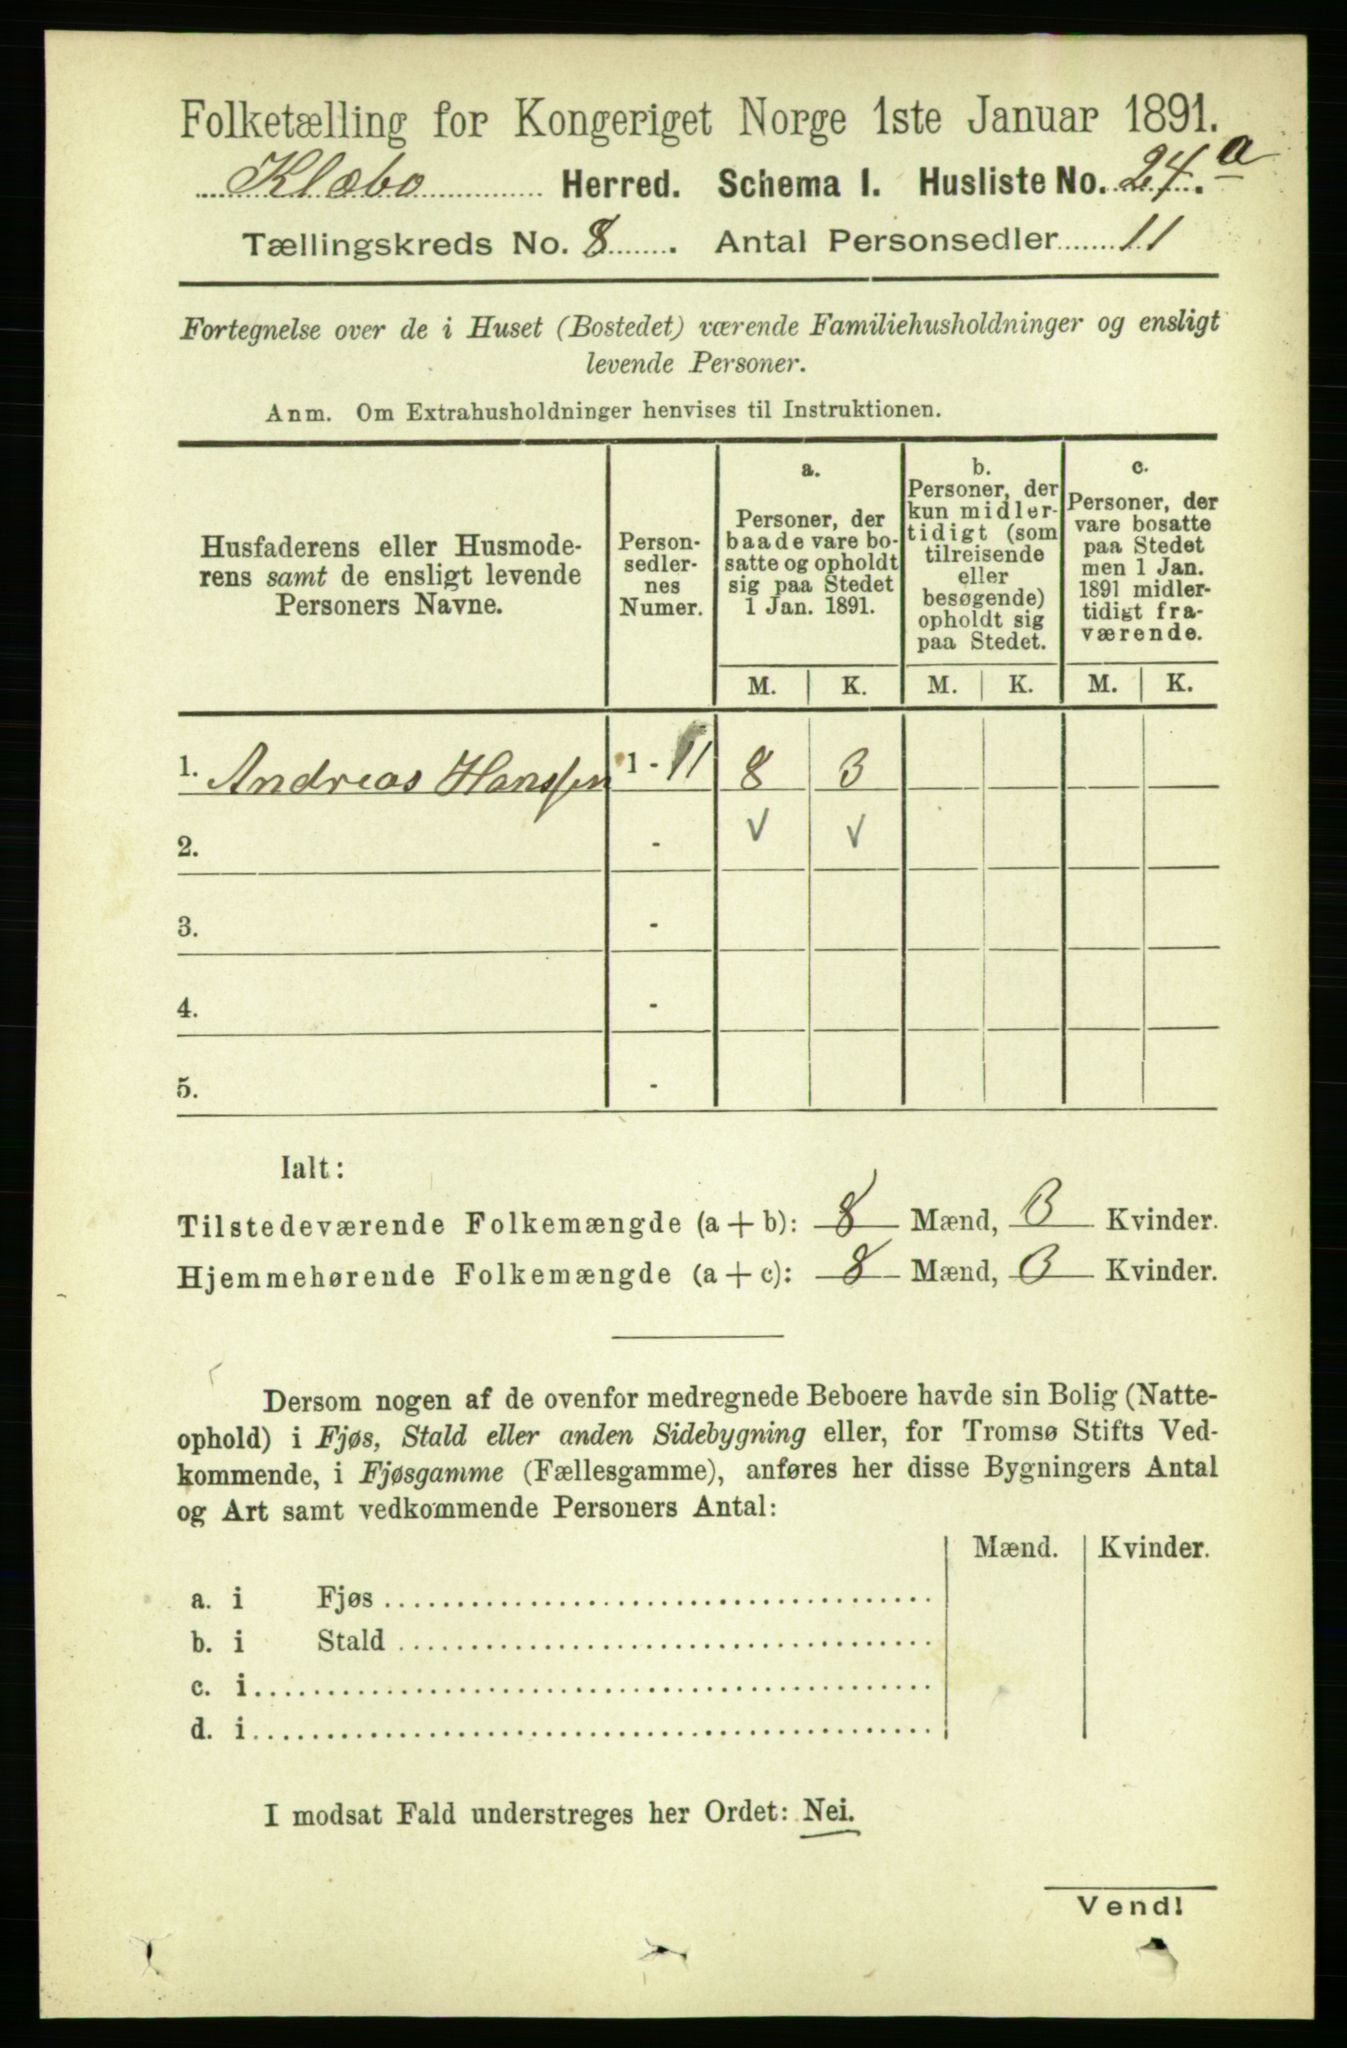 Folketælling for Kongeriget Norge 1ste Januar 1891.
Klæbo Herred. Schema I. Husliste No. 24. a
Tællingskreds No. 8. Antal Personsedler 11
Fortegnelse over de i Huset (Bostedet) værende Familiehusholdninger og ensligt
levende Personer.
Anm. Om Extrahusholdninger henvises til Instruktionen.
Husfaderens eller Husmode-
rens samt de ensligt levende
Personers Navne.
Person-
sedler-
nes
Numer.
a.
Personer, der
baade vare bo-
satte og opholdt
sig paa Stedet
1 Jan. 1891.
b.
Personer, der
kun midler-
tidigt (som
tilreisende
eller
besøgende)
opholdt sig
paa Stedet.
c.
Personer, der
vare bosatte
paa Stedet
men 1 Jan.
1891 midler-
tidigt fra-
værende.
M. K. M. K. M. K.
1. Andreas Hanssen 1 - 11 8 3
2. - √ √
3. -
4. -
5. -
Ialt:
Tilstedeværende Folkemængde (a + b): 8 Mænd, 3 Kvinder.
Hjemmehørende Folkemængde (a + c): 8 Mænd, 3 Kvinder.
Dersom nogen af de ovenfor medregnede Beboere havde sin Bolig (Natte-
ophold) i Fjøs, Stald eller anden Sidebygning eller, for Tromsø Stifts Ved-
kommende, i Fjøsgamme (Fællesgamme), anføres her disse Bygningers Antal
og Art samt vedkommende Personers Antal:
Mænd. Kvinder.
a. i Fjøs
b. i Stald
c. i
d. i
I modsat Fald understreges her Ordet: Nei.
Vend!